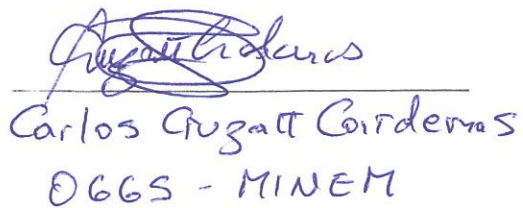 Carlos Guzatt Cardenas
OGGS - MINEM